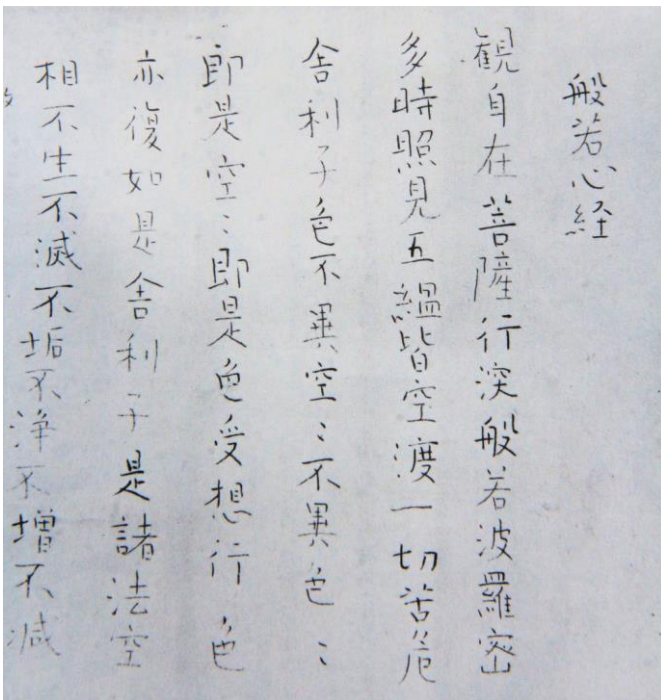 般若心経
観自在菩薩行深般若波羅密
多時照見五縕皆空渡一切苦危
舎利子色不異空〻不異色〻
即是空〻即是色受想行色
亦復如是舎利子是諸法空
相不生不滅不垢不浄不増不減